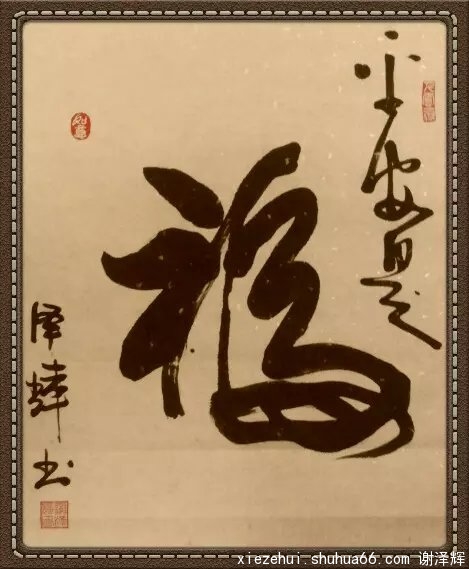 平安是
福
泽辉书
xiezehui.shuhua66.com 谢泽辉